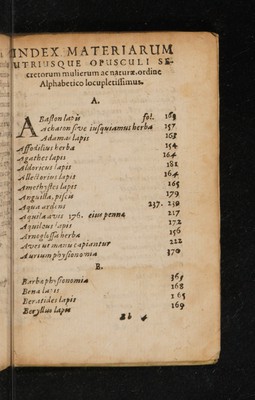 INDEX MATERIARUM
UTRIUSQUE OPUSCULI SE-
cretorum mulierum ac naturæ, ordine
Alphabetico locupletissimus.
A.
ABaston lapis fol. 168
Achaton sive iusquiamus herba 157
Adamas lapis 163
Affodilius herba 154
Agathes lapis 164
Aldoricus lapis 181
Allectorius lapis 164
Amethystes lapis 165
Anguilla, piscis 179
Aqua ardens 237. 239
Aquila avis 176. eius penna 217
Aquilous lapis 172
Arnoglossa herba 156
Aves ut manu capiantur 222
Aurium physionomia 370
B.
Barbæ physionomia 365
Bena lapis 168
Beratides lapis 165
Beryllus lapis 169
Bb 4